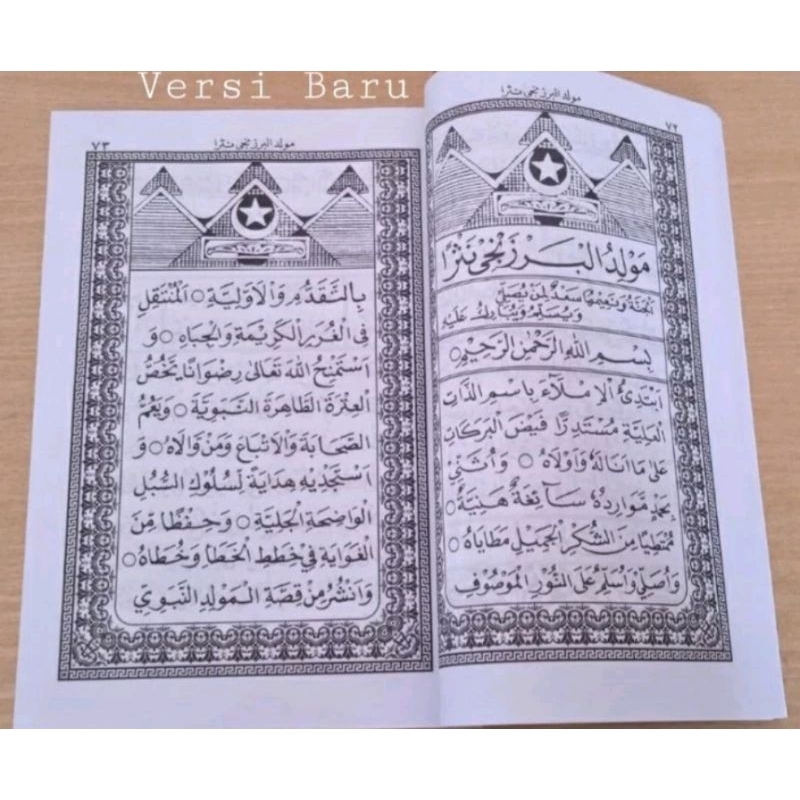 Versi Baru
٧٢
مولد البرزنجى نثرا
مَوْلِدُ الْبَرْزَنْجِى نَثْرًا
اَلْجَنَّةُ وَنَعِيْمُهَا سَعْدٌ لِمَنْ يُصَلِّى
وَيُسَلِّمُ وَيُبَارِكُ عَلَيْهِ
بِسْمِ اللهِ الرَّحْمٰنِ الرَّحِيْمِ
اَبْتَدِئُ الْاِمْلَاءَ بِاسْمِ الذَّاتِ
الْعَلِيَّةِ مُسْتَدِرًّا فَيْضَ الْبَرَكَاتِ
عَلَى مَا اَنَالَهُ وَاَوْلَاهُ ۝ وَاُثَنِّى
بِحَمْدٍ مَوَارِدُهُ سَآئِغَةٌ هَنِيَّةٌ ۝
مُمْتَطِيًا مِنَ الشُّكْرِ الْجَمِيْلِ مَطَايَاهُ ۝
وَاُصَلِّى وَاُسَلِّمُ عَلَى النُّوْرِ الْمَوْصُوْفِ
٧٣
مولد البرزنجى نثرا
بِالتَّقَدُّمِ وَالْاَوَّلِيَّةِ ۝ الْمُنْتَقِلِ
فِى الْغُرَرِ الْكَرِيْمَةِ وَالْجِبَاهِ ۝ وَ
اَسْتَمْنِحُ اللهَ تَعَالَى رِضْوَانًا يَخُصُّ
الْعِتْرَةَ الطَّاهِرَةَ النَّبَوِيَّةَ ۝ وَيَعُمُّ
الصَّحَابَةَ وَالْاَتْبَاعَ وَمَنْ وَالَاهُ ۝ وَ
اَسْتَجْدِيْهِ هِدَايَةً لِسُلُوْكِ السُّبُلِ
الْوَاضِحَةِ الْجَلِيَّةِ ۝ وَحِفْظًا مِنَ
الْغَوَايَةِ فِى خِطَطِ الْخَطَاِ وَخُطَاهُ ۝
وَاَنْشُرُ مِنْ قِصَّةِ الْمَوْلِدِ النَّبَوِيِّ